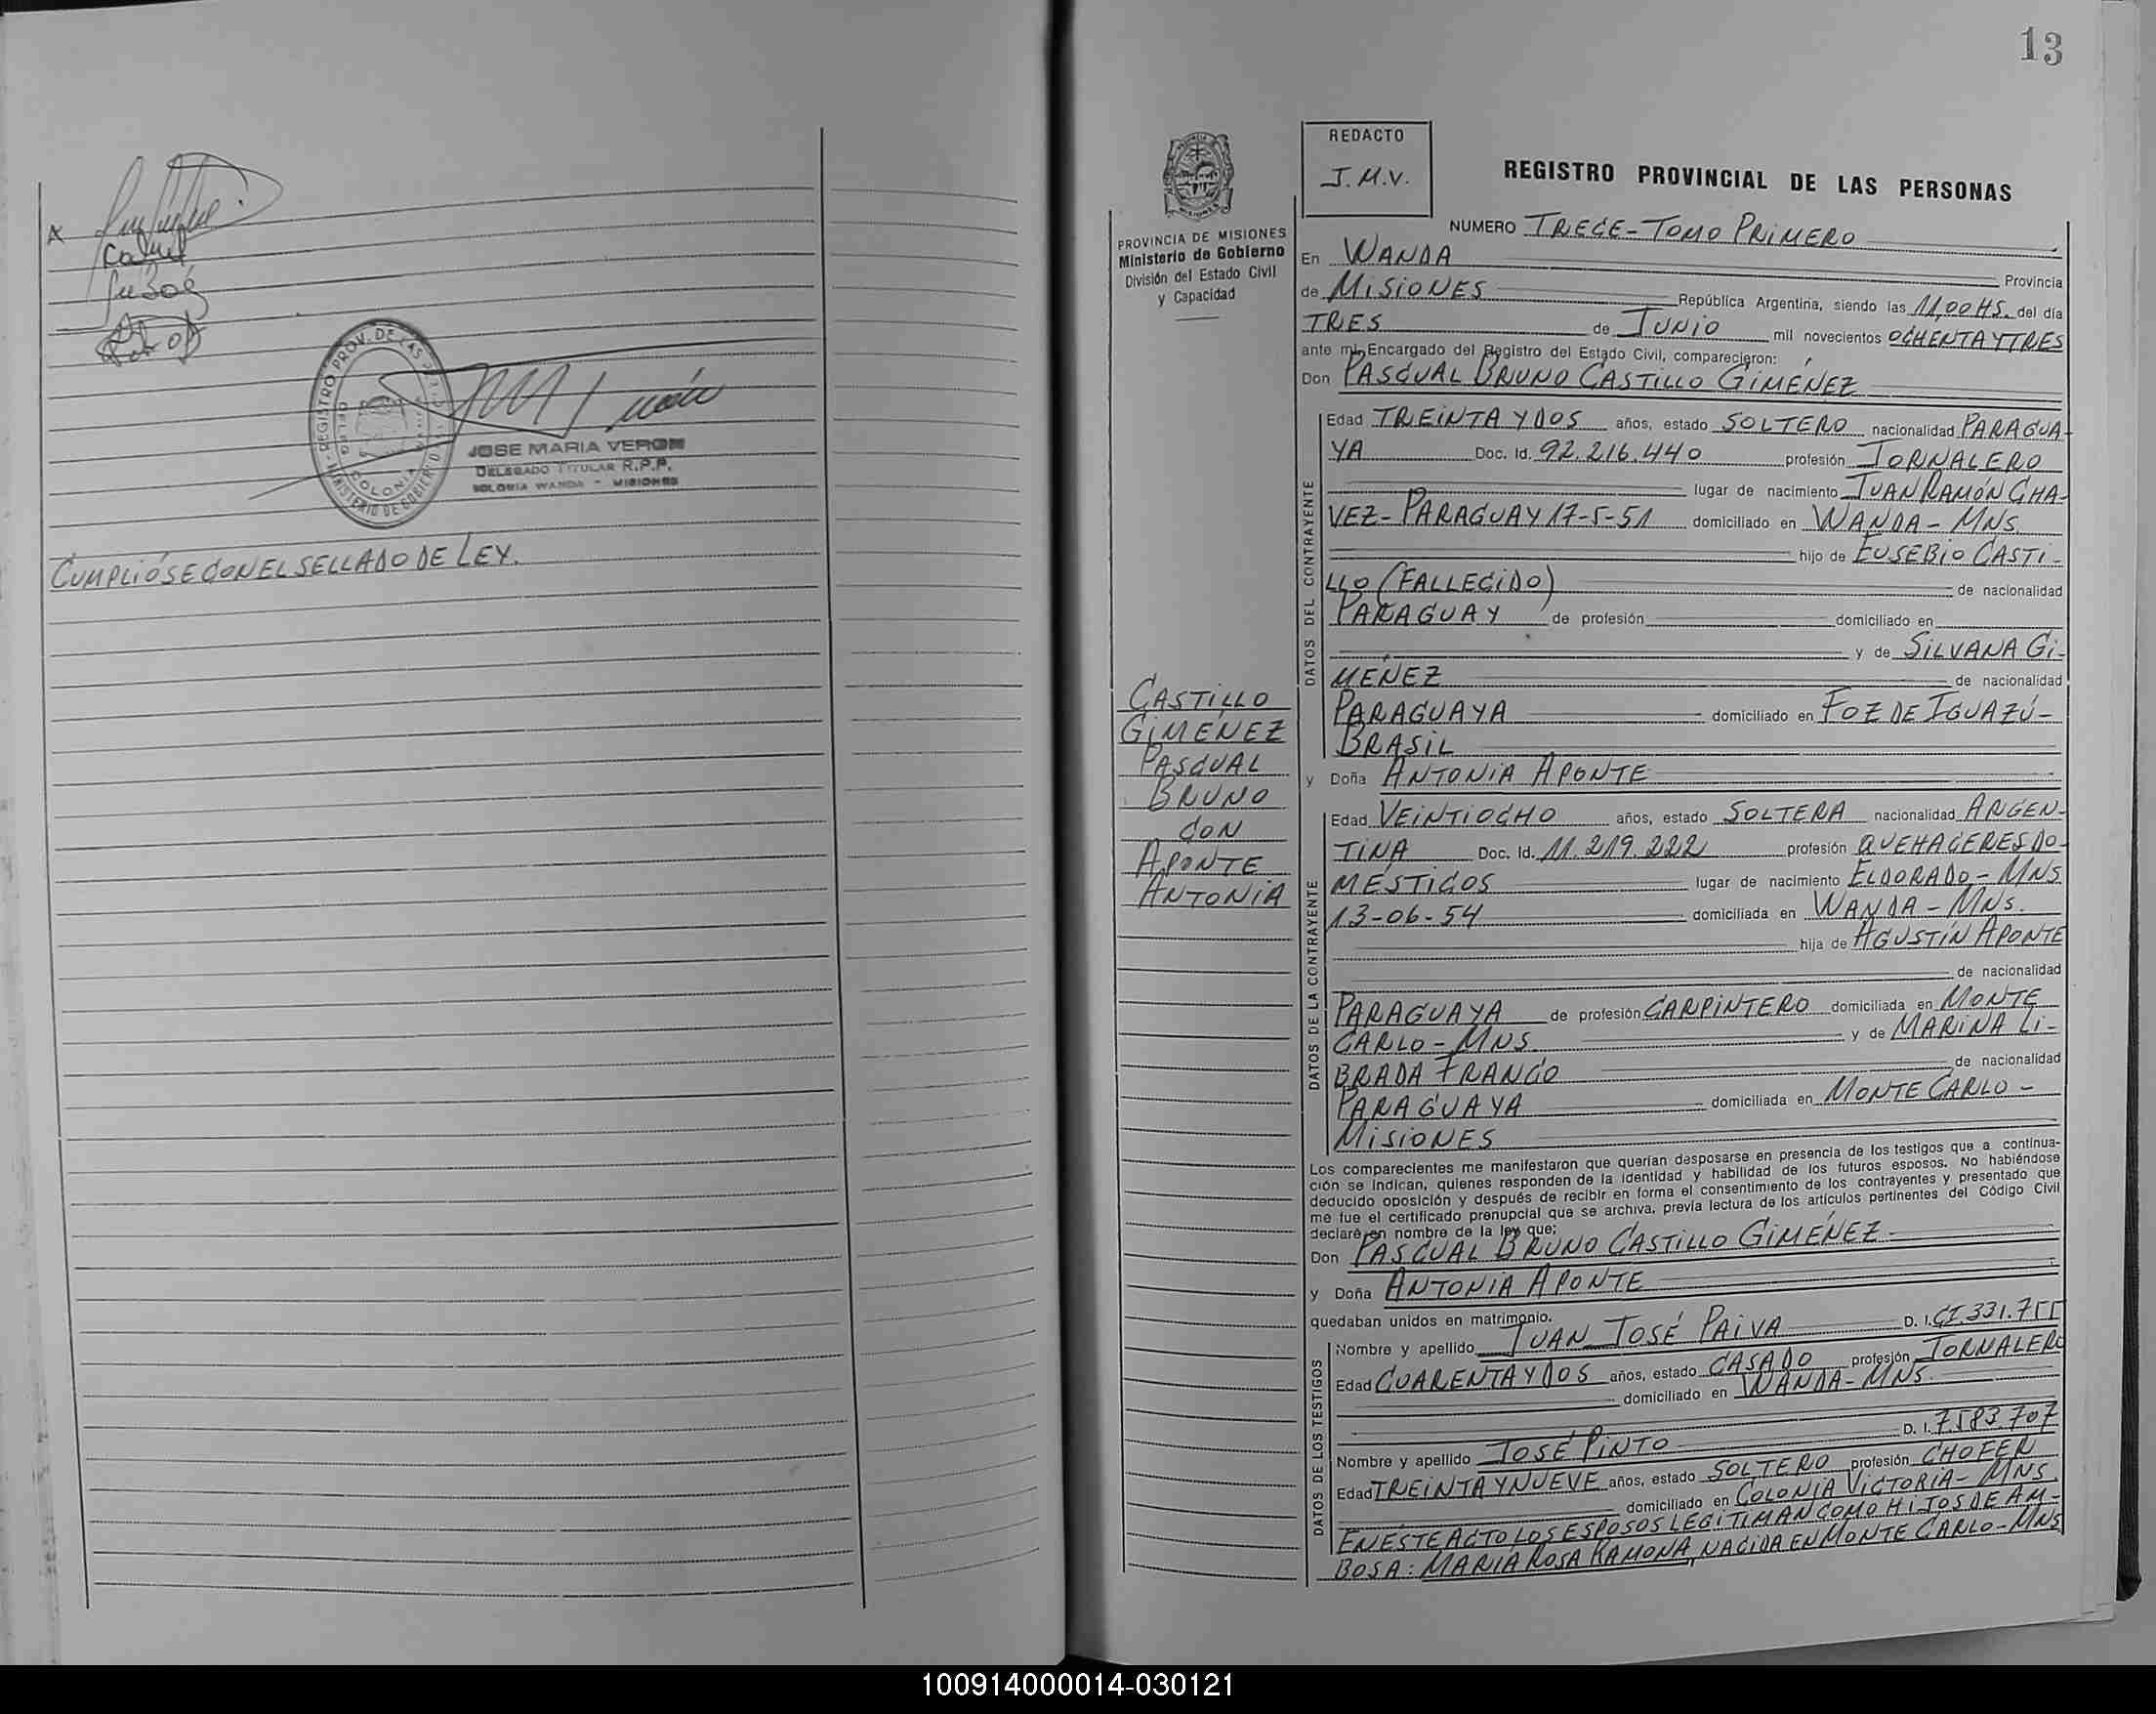 CUMPLIÓSE CON EL SELLADO DE LEY.
JOSE MARIA VERON
DELEGADO TITULAR R.P.P.
COLONIA WANDA - MISIONES
13
REDACTO
J.M.V.
REGISTRO PROVINCIAL DE LAS PERSONAS
PROVINCIA DE MISIONES
Ministerio de Gobierno
División del Estado Civil
y Capacidad
NUMERO TRECE - TOMO PRIMERO
En WANDA Provincia
de MISIONES República Argentina, siendo las 11,00 HS. del día
TRES de JUNIO mil novecientos OCHENTA Y TRES
ante mi, Encargado del Registro del Estado Civil, comparecieron:
Don PASCUAL BRUNO CASTILLO GIMÉNEZ
DATOS DEL CONTRAYENTE
Edad TREINTA Y DOS años, estado SOLTERO nacionalidad PARAGUA-
YA Doc. Id. 92.216.440 profesión JORNALERO
lugar de nacimiento JUAN RAMÓN CHA-
VEZ - PARAGUAY 17-5-51 domiciliado en WANDA - MNS.
hijo de EUSEBIO CASTI-
LLO (FALLECIDO) de nacionalidad
PARAGUAY de profesión domiciliado en
y de SILVANA GI-
MÉNEZ de nacionalidad
PARAGUAYA domiciliado en FOZ DE IGUAZÚ -
BRASIL
CASTILLO
GIMÉNEZ
PASCUAL
BRUNO
CON
APONTE
ANTONIA
y Doña ANTONIA APONTE
DATOS DE LA CONTRAYENTE
Edad VEINTIOCHO años, estado SOLTERA nacionalidad ARGEN-
TINA Doc. Id. 11.219.222 profesión QUEHACERES DO-
MÉSTICOS lugar de nacimiento ELDORADO - MNS
13-06-54 domiciliada en WANDA - MNS.
hija de AGUSTÍN APONTE
de nacionalidad
PARAGUAYA de profesión CARPINTERO domiciliada en MONTE
CARLO - MNS. y de MARINA LI-
BRADA FRANCO de nacionalidad
PARAGUAYA domiciliada en MONTE CARLO -
MISIONES
Los comparecientes me manifestaron que querían desposarse en presencia de los testigos que a continua-
ción se indican, quienes responden de la identidad y habilidad de los futuros esposos. No habiéndose
deducido oposición y después de recibir en forma el consentimiento de los contrayentes y presentado que
me fue el certificado prenupcial que se archiva, previa lectura de los artículos pertinentes del Código Civil
declaré en nombre de la ley que:
Don PASCUAL BRUNO CASTILLO GIMÉNEZ -
y Doña ANTONIA APONTE
quedaban unidos en matrimonio.
DATOS DE LOS TESTIGOS
Nombre y apellido JUAN JOSÉ PAIVA D. I. CI. 331.755
Edad CUARENTA Y DOS años, estado CASADO profesión JORNALERO
domiciliado en WANDA - MNS.
D. I. 7.583.707
Nombre y apellido JOSÉ PINTO
Edad TREINTA Y NUEVE años, estado SOLTERO profesión CHOFER
domiciliado en COLONIA VICTORIA - MNS.
EN ESTE ACTO LOS ESPOSOS LEGITIMAN COMO HIJOS DE AM-
BOS A: MARIA ROSA RAMONA, NACIDA EN MONTE CARLO - MNS
100914000014-030121